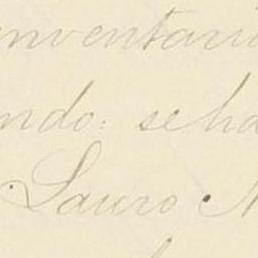 inventari
ndo: se ha
Lauro